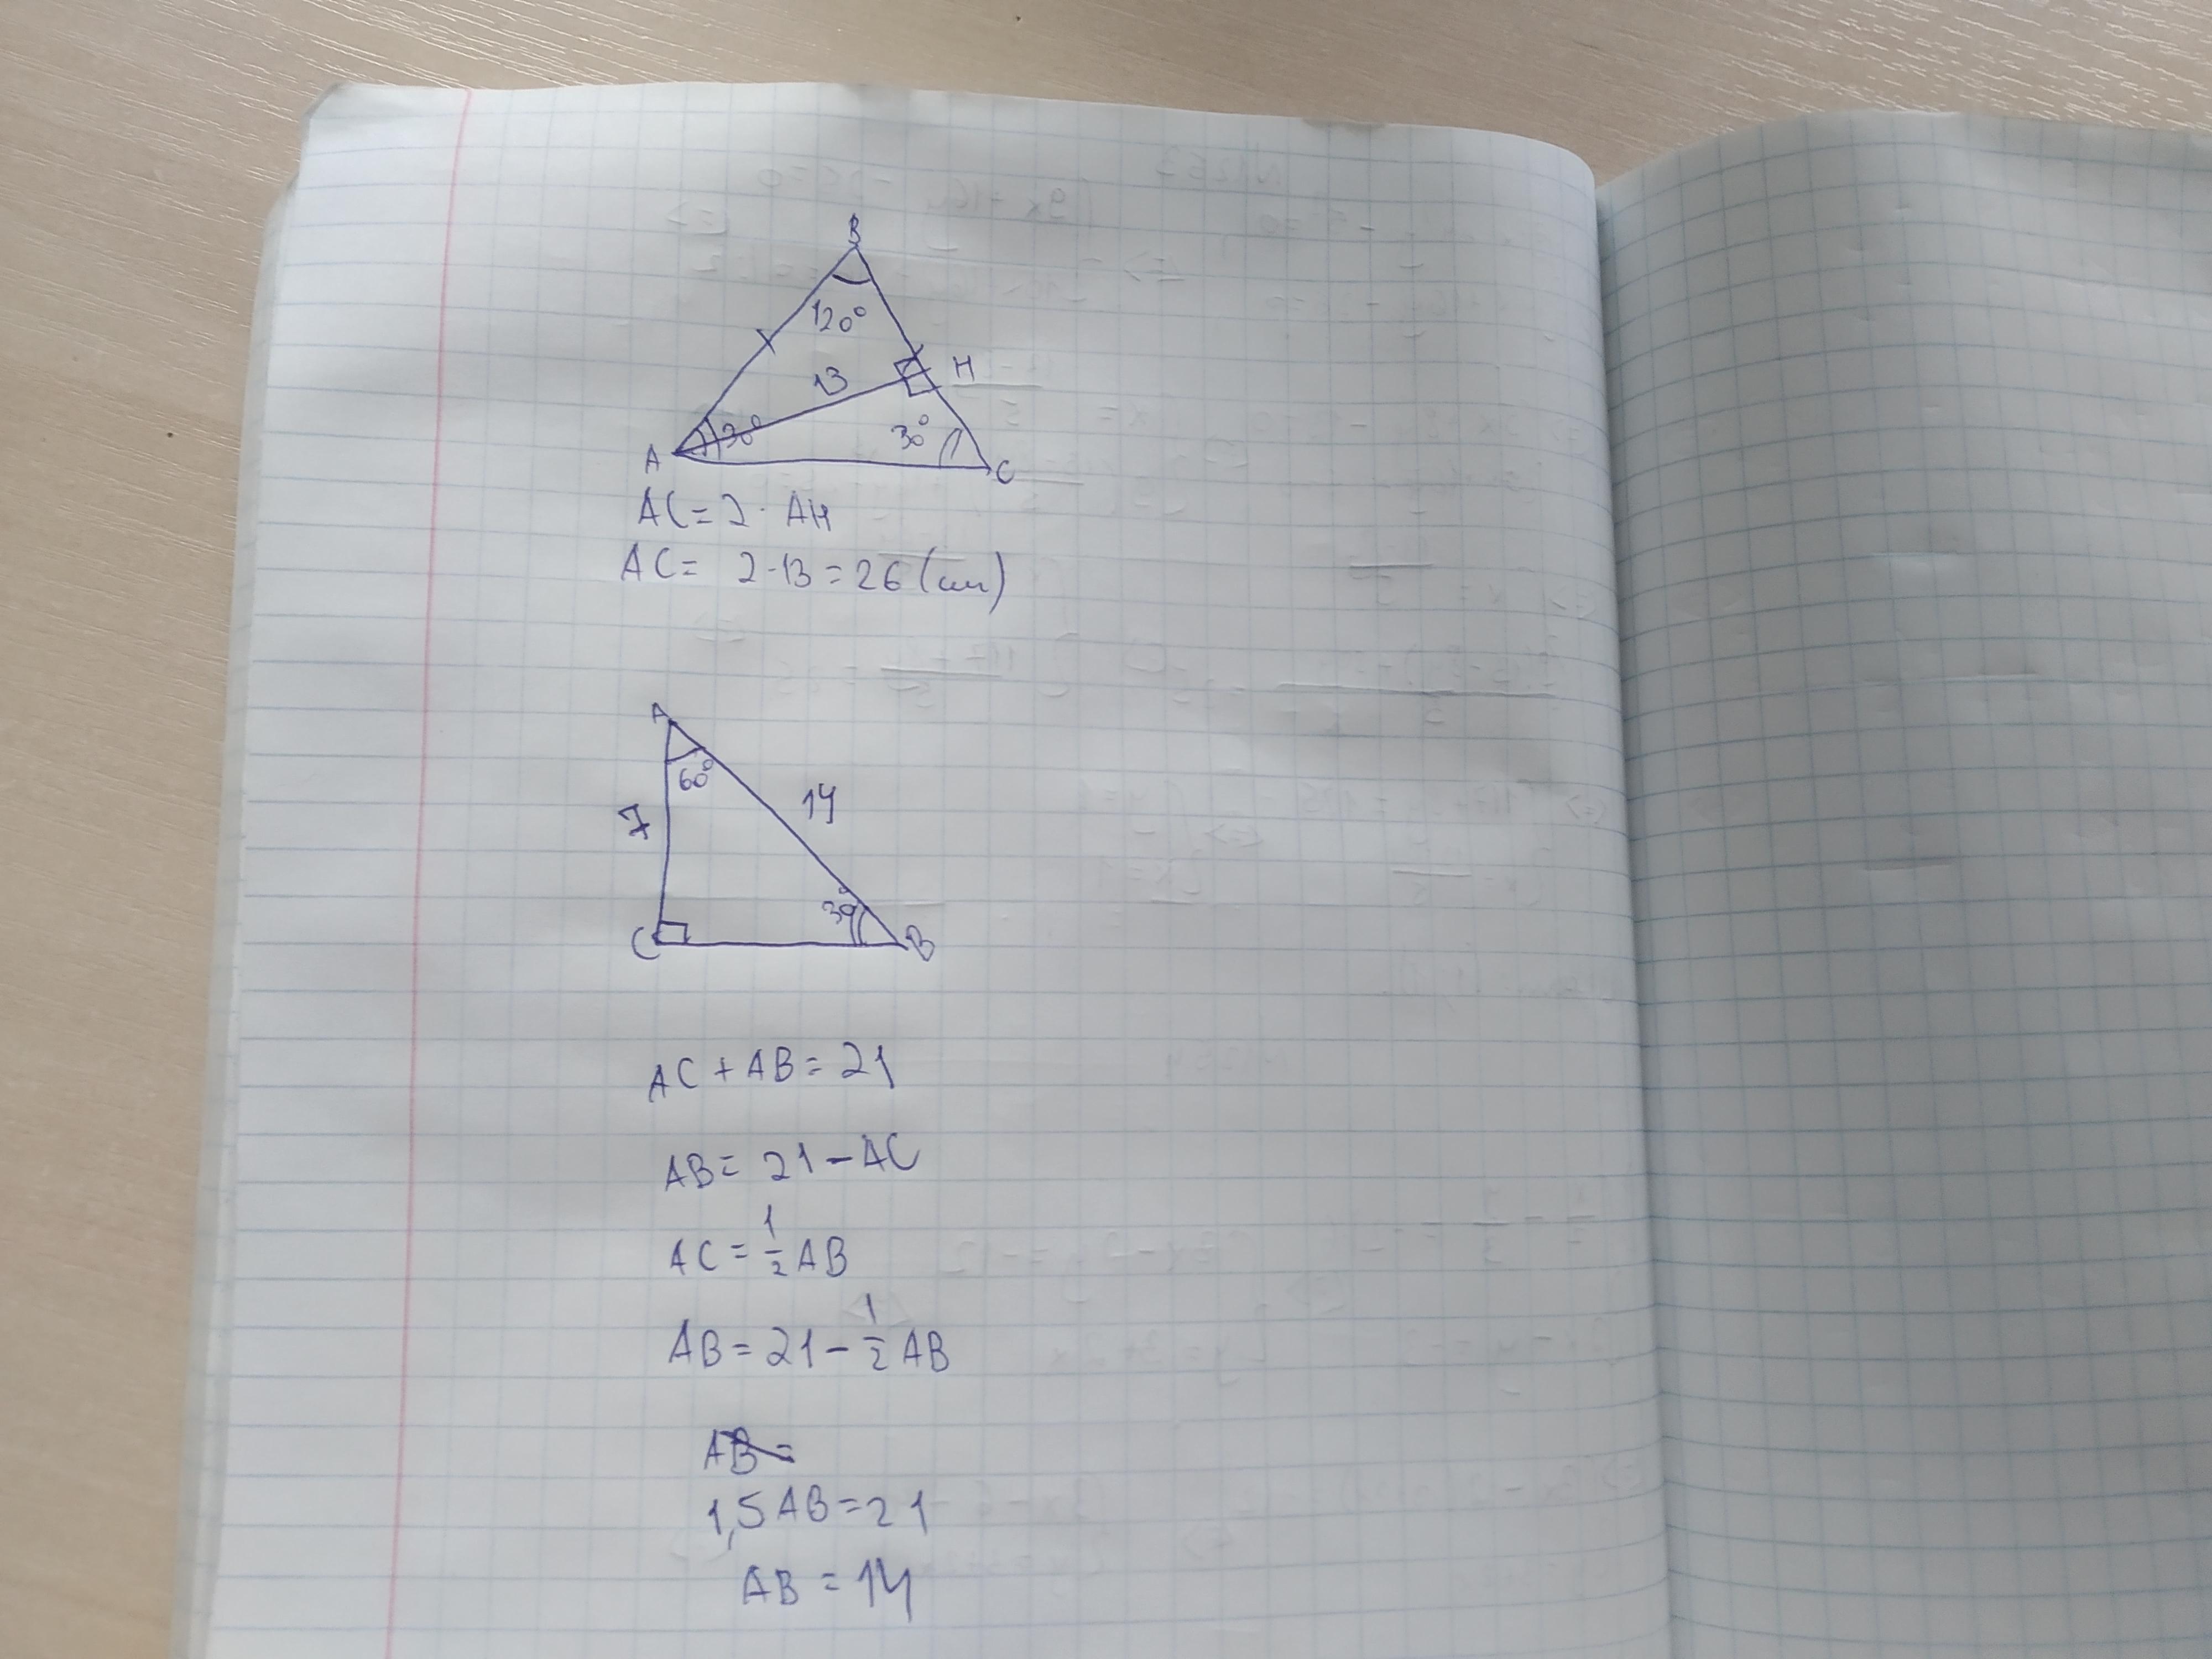 B
120°
13
H
30°
30°
A
C
AC = 2 · AH
AC = 2 · 13 = 26 (см)
A
60°
14
7
30°
C
B
AC + AB = 21
AB = 21 − AC
AC = 1/2 AB
AB = 21 − 1/2 AB
AB =
1,5 AB = 21
AB = 14